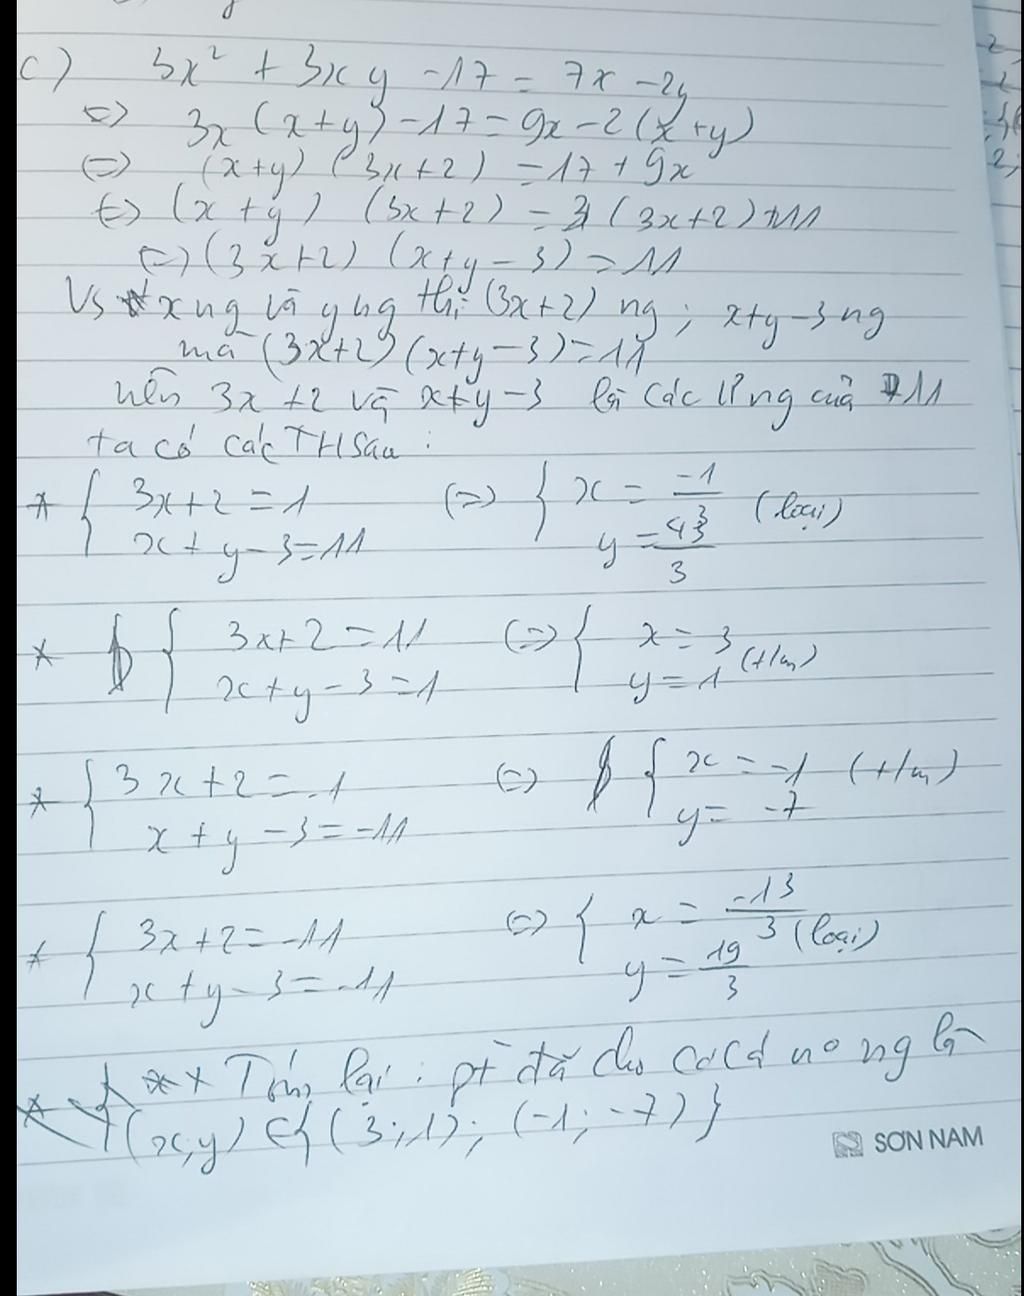 c) 3x² + 3xy - 17 = 7x - 2y
⇔ 3x(x+y) - 17 = 9x - 2(x+y)
⇔ (x+y)(3x+2) = 17 + 9x
⇔ (x+y)(3x+2) = 3(3x+2) + 11
⇔ (3x+2)(x+y-3) = 11
Vs x ng và y ng thì (3x+2) ng ; x+y-3 ng
mà (3x+2)(x+y-3) = 11
nên 3x+2 và x+y-3 là các Ư ng của 11
ta có các TH sau :
* { 3x+2 = 1 (⇔) { x = -1/3
x+y-3 = 11 y = 43/3 (loại)
* { 3x+2 = 11 (⇔) { x = 3
x+y-3 = 1 y = 1 (t/m)
* { 3x+2 = -1 ⇔ { x = -1 (t/m)
x+y-3 = -11 y = -7
* { 3x+2 = -11 ⇔ { x = -13/3
x+y-3 = -11 y = 19/3 (loại)
** Tóm lại : pt đã cho có cá no ng là
(x;y) ∈ {(3;1); (-1;-7)}
SON NAM